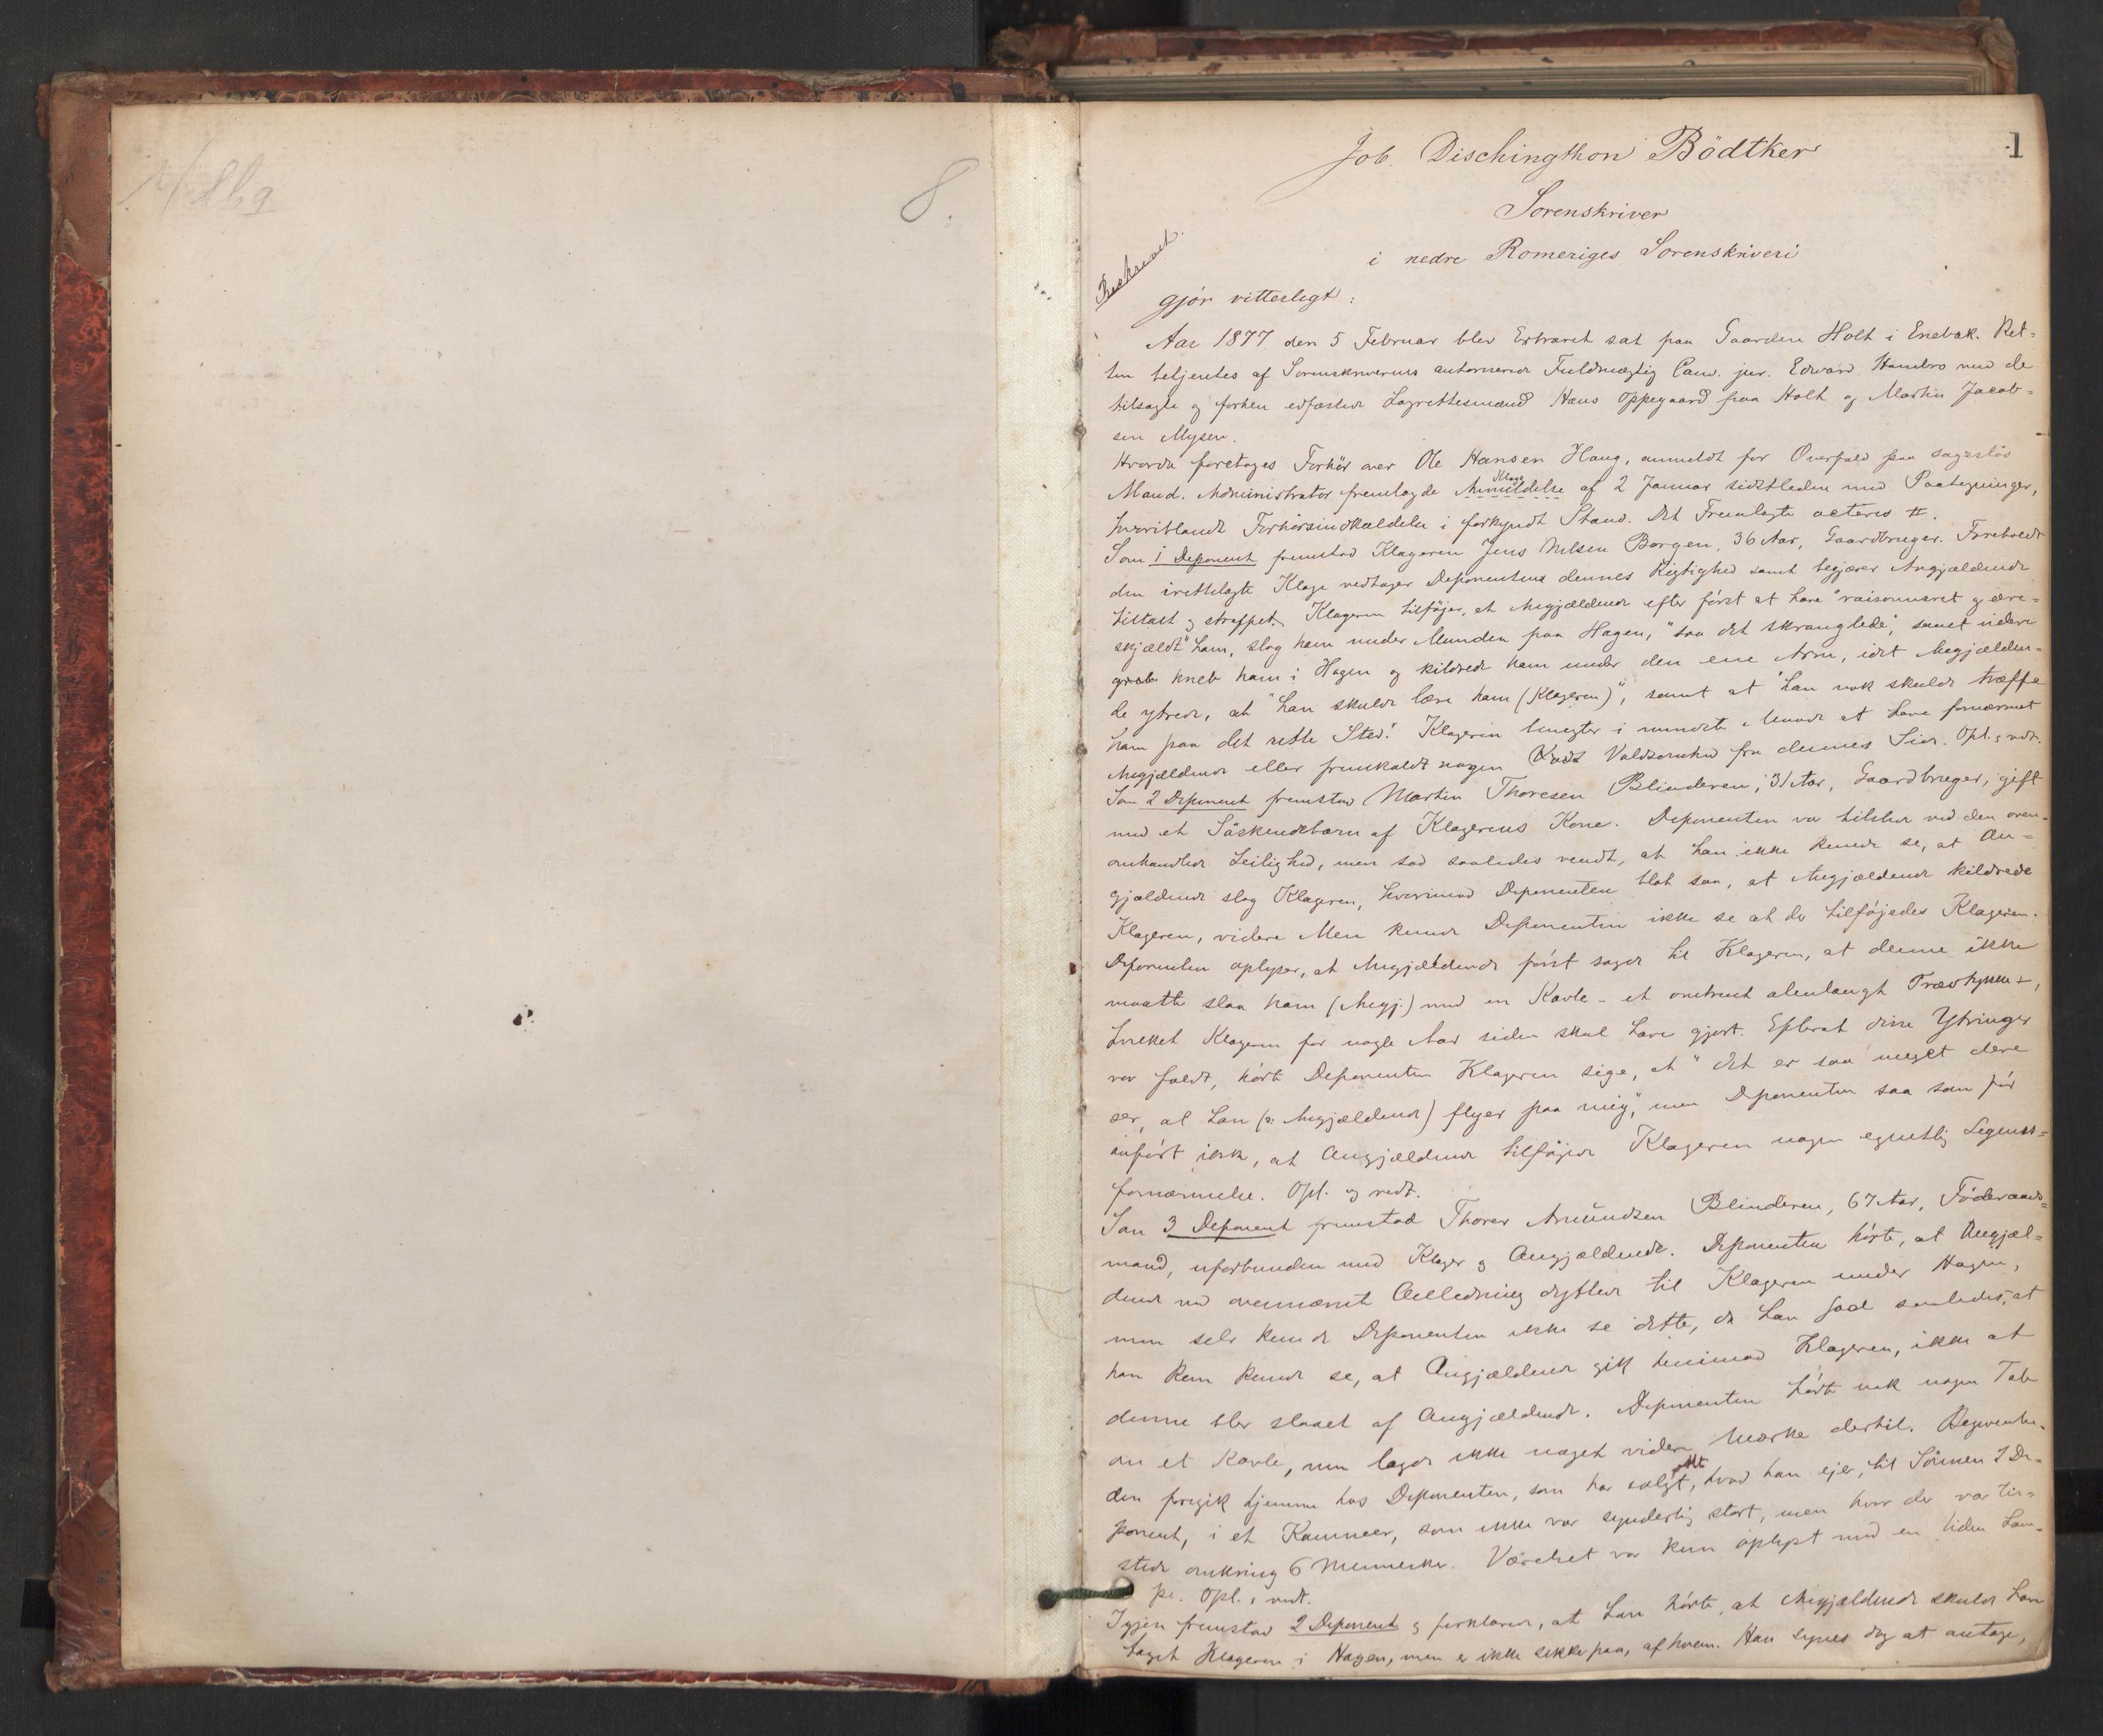 8.
1
Job. Dischingthon Bödtker
Sorenskriver
i nedre Romeriges Sorenskriveri
Beskrevet.
gjör vitterligt:
Aar 1877 den 5 Februar blev Extraret sat paa Gaarden Holt i Enebak. Ret=
ten betjentes af Sorenskriverens autoriserede Fuldmægtig Cand. jur. Edvard Hambro med de
tilsagte og forhen edfæstede Lagrettesmænd Hans Oppegaard paa Holt og Martin Jacob=
sen Mysen.
Hvorda foretoges Forhör over Ole Hansen Haug, anmeldt for Overfald paa sageslös
Mand. Administrator fremlagde Anmeldelse Klage af 2 Januar sidstleden med Paategninger,
hvoriblandt Forhörsindkaldelse i forkyndt Stand. Det Fremlagte acteres #.
Som 1 Deponent fremstod Klageren Jens Nilsen Borgen, 36 Aar, Gaardbruger. Foreholdt
den irettelagte Klage vedtager Deponenten dennes Rigtighed samt begjærer Angjældende
tiltalt og straffet. Klageren tilföjer, at Angjældende efter först at have "raisonneret og ære=
skjældt" ham, slog ham under Munden paa Hagen, "saa det skranglede", samt videre
greb kneb ham i Hagen og kildrede ham under den ene Arm, idet Angjælden=
de ytrede, at "han skulde lære ham (Klageren)", samt at "han nok skulde træffe
ham paa det rette Sted". Klageren benegter i mindste Maade at have fornærmet
Angjældende eller fremkaldt nogen Voldsomhed fra dennes Side. Opl. & vedt.
Som 2 Deponent fremstod Martin Thoresen Blinderen, 31 Aar, Gaardbruger, gift
med et Söskendebarn af Klagerens Kone. Deponenten var tilstede ved den oven=
omhandlede Leilighed, men sad saaledes vendt, at han ikke kunde se, at An=
gjældende slog Klageren, hvorimod Deponenten blot saa, at Angjældende kildrede
Klageren, videre Men kunde Deponenten ikke se at der tilföjedes Klageren.
Deponenten oplyser, at Angjældende först sagde til Klageren, at denne ikke
maatte slaa ham (Angj.) med en Kavle - et omtrent alenlangt Træstykke -,
hvilket Klageren for nogle Aar siden skal have gjort. Efterat disse Ytringer
var faldt, hörte Deponenten Klageren sige, at "det er saa meget dere
ser, at han (ɔ: Angjældende) flyer paa mig", men Deponenten saa som för
anfört ikke, at Angjældende tilföjede Klageren nogen egentlig Legems=
fornærmelse. Opl. og vedt.
Som 3 Deponent fremstod Thorer Amundsen Blinderen, 67 Aar, Föderaads=
mand, uforbunden med Klager og Angjældende. Deponenten hörte, at Angjæl=
dende ved ovennævnte Anledning dyttede til Klageren under Hagen,
men selv kunde Deponenten ikke se dette, da han sad saaledes, at
han kun kunde se, at Angjældende gik henimod Klageren, ikke at
denne blev slaaet af Angjældende. Deponenten hörte nok nogen Tale
om et Kavle, men lagde ikke noget videre Mærke dertil. Begivenhe=
den foregik hjemme hos Deponenten, som har solgt alt, hvad han ejer, til Sönnen 2 De=
ponent, i et Kammer, som ikke var synderlig stort, men hvor der var til=
stede omkring 6 Mennesker. Værelset var kun oplyst med en liden Lam=
pe. Opl. & vedt.
Igjen fremstod 2 Deponent og forklarede, at han hörte, at Angjældende skulde have
taget Klageren i Hagen, men er ikke sikker paa, af hvem. Han synes dog at antage,